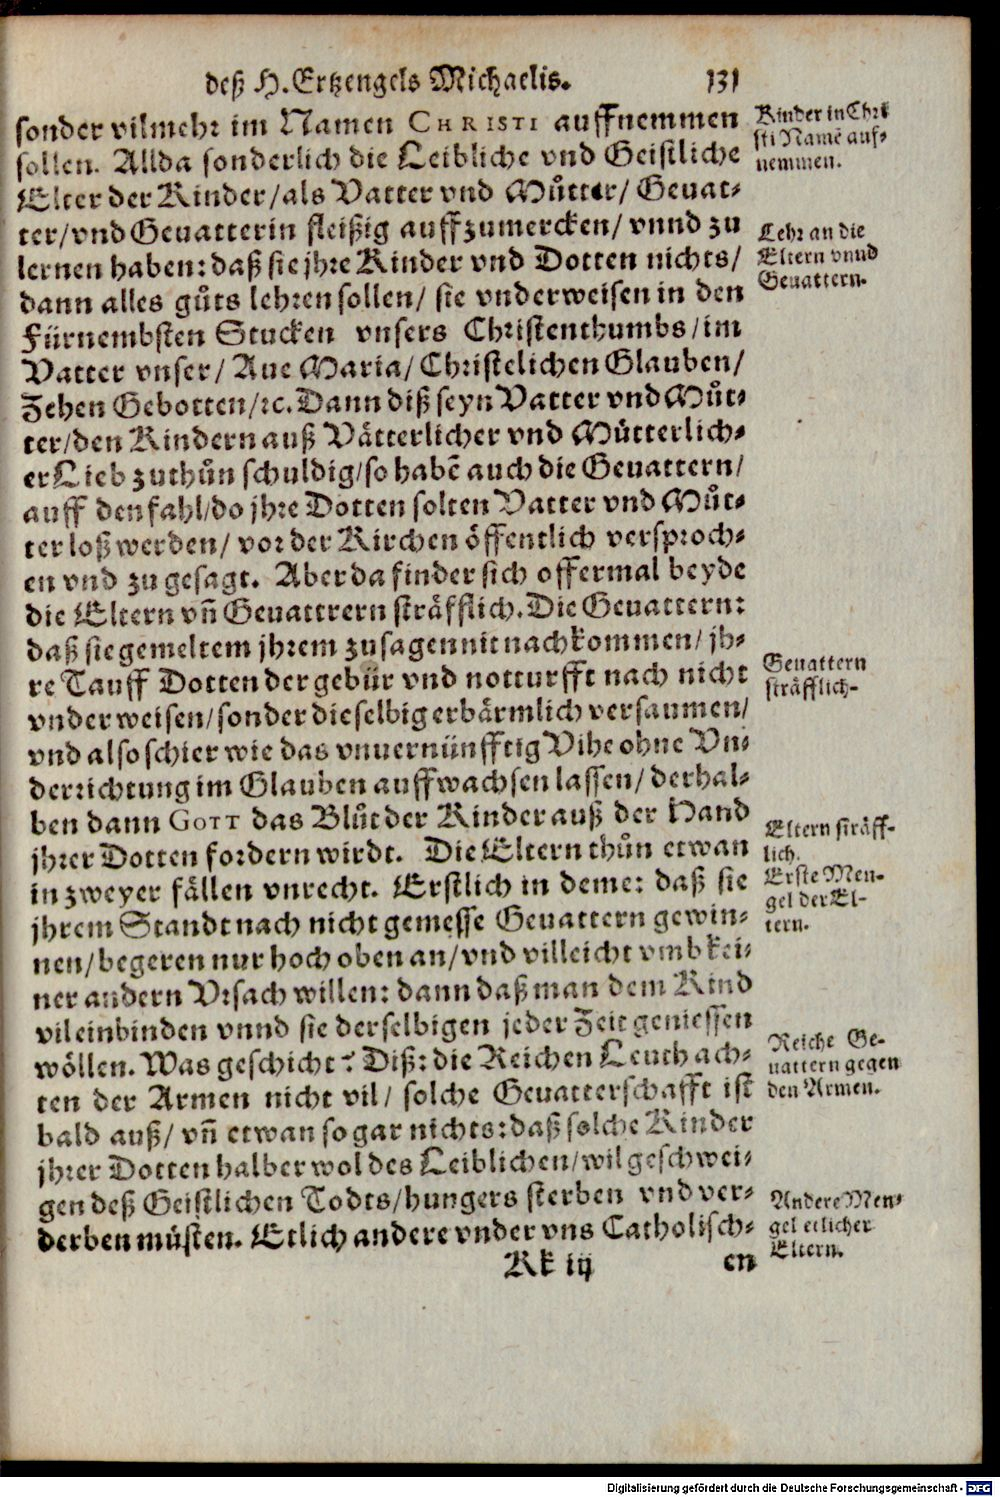 deß H. Ertzengels Michaelis. 131
sonder vilmehr im Namen CHRISTI auffnemmen
sollen. Allda sonderlich die Leibliche vnd Geistliche
Elter der Kinder/als Vatter vnd Můtter/ Geuat-
ter/vnd Geuatterin fleißig auffzumercken/ vnnd zu
lernen haben: daß sie jhre Kinder vnd Dotten nichts/
dann alles gůts lehren sollen/ sie vnderweisen in den
Fürnembsten Stucken vnsers Christenthumbs/im
Vatter vnser/ Aue Maria/ Christelichen Glauben/
Zehen Gebotten/ꝛc. Dann diß seyn Vatter vnd Můt-
ter/den Kindern auß Vätterlicher vnd Mütterlich-
er Lieb zuthůn schuldig/so habē auch die Geuattern/
auff den fahl/do jhre Dotten solten Vatter vnd Můt-
ter loß werden/ vor der Kirchen öffentlich versproch-
en vnd zu gesagt. Aber da finder sich offermal beyde
die Eltern vn̄ Geuattrern sträfflich. Die Geuattern:
daß sie gemeltem jhrem zusagen nit nachkommen/ jh-
re Tauff Dotten der gebür vnd notturfft nach nicht
vnderweisen/sonder dieselbig erbärmlich versaumen/
vnd also schier wie das vnuernünfftig Vihe ohne Vn-
derrichtung im Glauben auffwachsen lassen/ derhal-
ben dann GOTT das Blůt der Kinder auß der Hand
jhrer Dotten fordern wirdt. Die Eltern thůn etwan
in zweyer fällen vnrecht. Erstlich in deme: daß sie
jhrem Standt nach nicht gemesse Geuattern gewin-
nen/begeren nur hoch oben an/vnd villeicht vmb kei-
ner andern Vrsach willen: dann daß man dem Kind
vil einbinden vnnd sie derselbigen jeder Zeit geniessen
wöllen. Was geschicht? Diß: die Reichen Leuth ach-
ten der Armen nicht vil/ solche Geuatterschafft ist
bald auß/ vn̄ etwan so gar nichts: daß solche Kinder
jhrer Dotten halber wol des Leiblichen/wil geschwei-
gen deß Geistlichen Todts/hungers sterben vnd ver-
derben müsten. Etlich andere vnder vns Catholisch-
Kk iij en
Kinder in Chri
sti Namē auf-
nemmen.
Lehr an die
Eltern vnnd
Geuattern.
Geuattern
sträfflich-
Eltern sträff-
lich.
Erste Men-
gel der El-
tern.
Reiche Ge-
uattern gegen
den Armen.
Andere Men-
gel etlicher
Eltern.
Digitalisierung gefördert durch die Deutsche Forschungsgemeinschaft - DFG